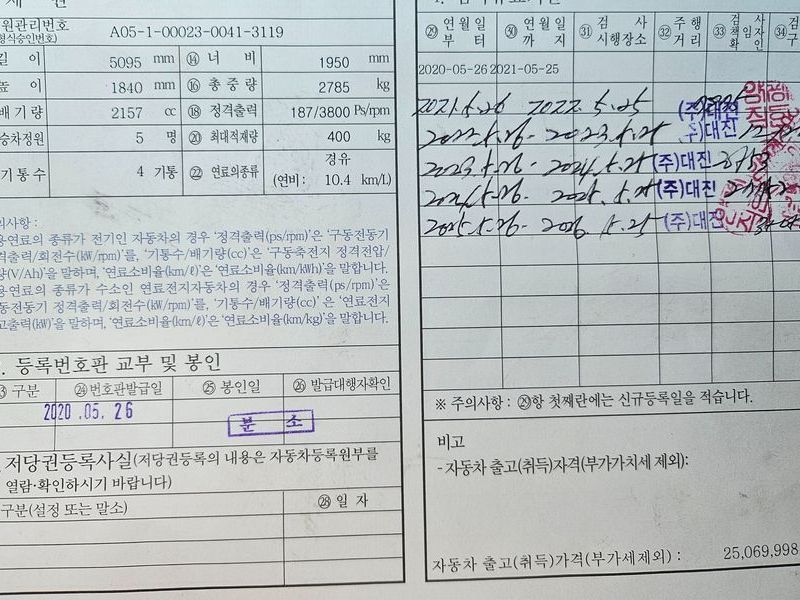 제 원
원관리번호
형식승인번호)
A05-1-00023-0041-3119
길 이 5095 mm ⑭ 너 비 1950 mm
높 이 1840 mm ⑯ 총 중 량 2785 kg
배 기 량 2157 cc ⑱ 정격출력 187/3800 Ps/rpm
승차정원 5 명 ⑳ 최대적재량 400 kg
기 통 수 4 기통 ㉒ 연료의종류 경유
(연비: 10.4 km/L)
의사항 :
용연료의 종류가 전기인 자동차의 경우 '정격출력(ps/rpm)'은 '구동전동기
격출력/회전수(kW/rpm)'를, '기통수/배기량(cc)'은 '구동축전지 정격전압/
량(V/Ah)'을 말하며, '연료소비율(km/ℓ)'은 '연료소비율(km/kWh)'을 말합니다.
용연료의 종류가 수소인 연료전지자동차의 경우 '정격출력(ps/rpm)'은
동전동기 정격출력/회전수(kW/rpm)'를, '기통수/배기량(cc)' 은 '연료전지
고출력(kW)'을 말하며, '연료소비율(km/ℓ)'은 '연료소비율(km/kg)'을 말합니다.
. 등록번호판 교부 및 봉인
㉓ 구분 ㉔번호판발급일 ㉕ 봉인일 ㉖ 발급대행자확인
2020 .05. 26
분 소
저당권등록사실(저당권등록의 내용은 자동차등록원부를
열람·확인하시기 바랍니다)
구분(설정 또는 말소) ㉘ 일 자
㉙ 연 월 일
부 터
㉚ 연 월 일
까 지
㉛ 검 사
시행장소
㉜ 주 행
거 리
㉝ 검 사
책 임 자
확 인
㉞ 검
구
2020-05-26 2021-05-25
2021.5.26 2022.5.25 (주)대진
2022.5.26 - 2023.5.25 (주)대진
2023.5.26 - 2024.5.25 (주)대진
2024.5.26 - 2025.5.25 (주)대진
2025.5.26 - 2026.5.25 (주)대진
※ 주의사항 : ㉙항 첫째란에는 신규등록일을 적습니다.
비고
- 자동차 출고(취득)자격(부가가치세 제외):
자동차 출고(취득)가격(부가세제외) : 25,069,998